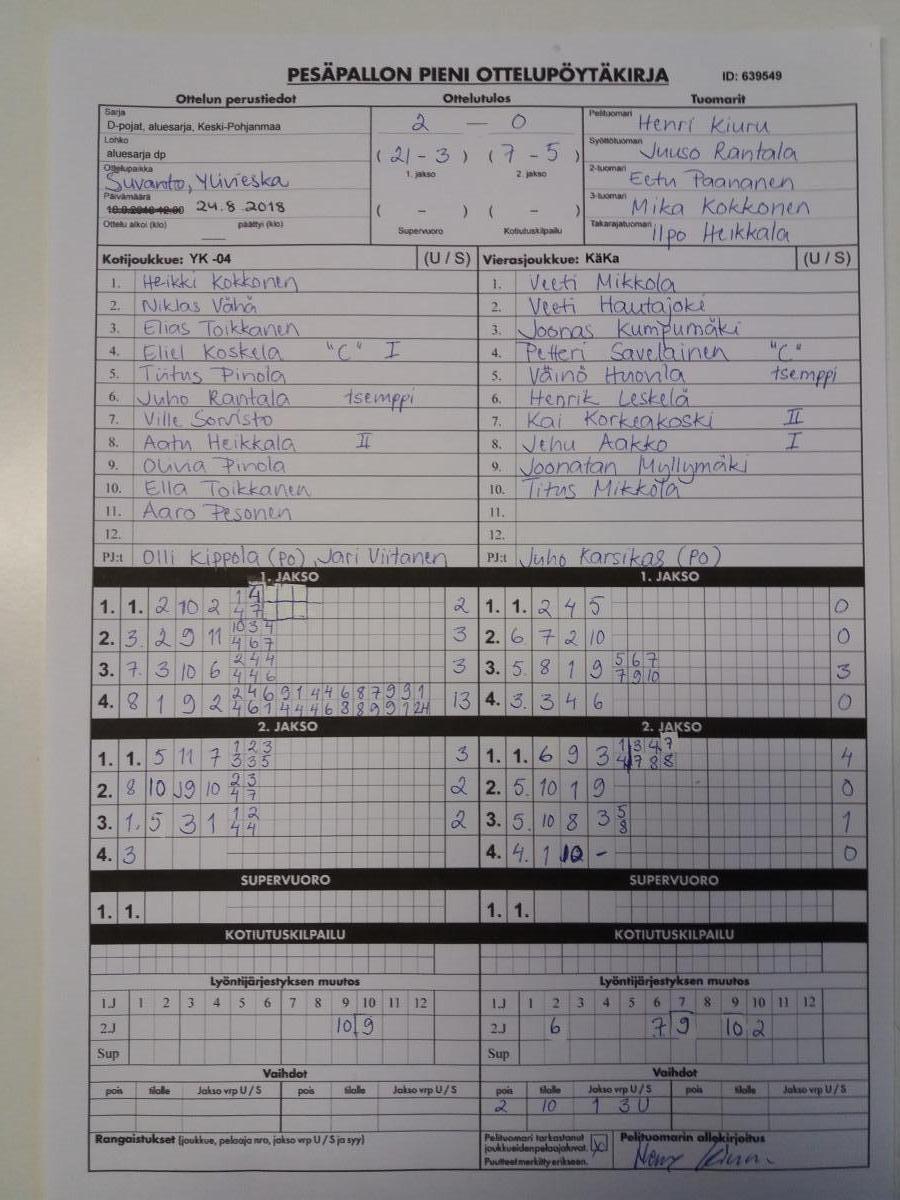 PESÄPALLON PIENI OTTELUPÖYTÄKIRJA ID: 639549
Ottelun perustiedot Ottelutulos Tuomarit
Sarja
D-pojat, aluesarja, Keski-Pohjanmaa
Lohko
aluesarja dp
Ottelupaikka
Suvanto, Ylivieska
Päivämäärä
24.8.2018
Ottelu alkoi (klo) päättyi (klo)
2 — 0
(21 - 3) (7 - 5)
1. jakso 2. jakso
( - ) ( - )
Supervuoro Kotiutuskilpailu
Pelituomari Henri Kiuru
Syöttötuomari Juuso Rantala
2-tuomari Eetu Paananen
3-tuomari Mika Kokkonen
Takarajatuomari Ilpo Heikkala
Kotijoukkue: YK -04 (U / S)
1. Heikki Kokkonen
2. Niklas Vähä
3. Elias Toikkanen
4. Eliel Koskela "C" I
5. Tiitus Pinola
6. Juho Rantala tsemppi
7. Ville Sorvisto
8. Aatu Heikkala II
9. Olivia Pinola
10. Ella Toikkanen
11. Aaro Pesonen
12.
PJ:t Olli Kippola (PO), Jari Viitanen
Vierasjoukkue: KäKa (U / S)
1. Veeti Mikkola
2. Veeti Hautajoki
3. Joonas Kumpumäki
4. Petteri Savelainen "C"
5. Väinö Huovila tsemppi
6. Henrik Leskelä
7. Kai Korkeakoski II
8. Jehu Aakko I
9. Joonatan Myllymäki
10. Titus Mikkola
11.
12.
PJ:t Juho Karsikas (PO)
1. JAKSO
1. 1. 2 10 2 1 4 2
4 7
2. 3. 2 9 11 10 3 4 3
4 6 7
3. 7. 3 10 6 2 4 4 3
4 4 6
4. 8 1 9 2 2 4 6 9 1 4 4 6 8 7 9 9 1 13
1. JAKSO
1. 1. 2 4 5 0
2. 6. 7 2 10 0
3. 5. 8 1 9 5 6 7 3
7 9 10
4. 3. 3 4 6 0
2. JAKSO
1. 1. 5 11 7 1 2 3 3
3 3 5
2. 8 10 9 10 2 3 2
4 7
3. 1. 5 3 1 1 2 2
4 4
4. 3
2. JAKSO
1. 1. 6 9 3 1 3 4 7 4
4 7 8 8
2. 5. 10 1 9 0
3. 5. 10 8 3 5 1
8
4. 4. 1 10 - 0
SUPERVUORO
1. 1.
SUPERVUORO
1. 1.
KOTIUTUSKILPAILU
KOTIUTUSKILPAILU
Lyöntijärjestyksen muutos
1.J 1 2 3 4 5 6 7 8 9 10 11 12
2.J 10 9
Sup
Lyöntijärjestyksen muutos
1.J 1 2 3 4 5 6 7 8 9 10 11 12
2.J 6 7 9 10 2
Sup
Vaihdot
pois tilalle Jakso vrp U / S pois tilalle Jakso vrp U / S
Vaihdot
pois tilalle Jakso vrp U / S pois tilalle Jakso vrp U / S
2 10 1 3U
Rangaistukset (joukkue, pelaaja nro, jakso vrp U / S ja syy)
Pelituomari tarkastanut
joukkueiden pelaajaluvat. X
Puutteet merkitty erikseen.
Pelituomarin allekirjoitus